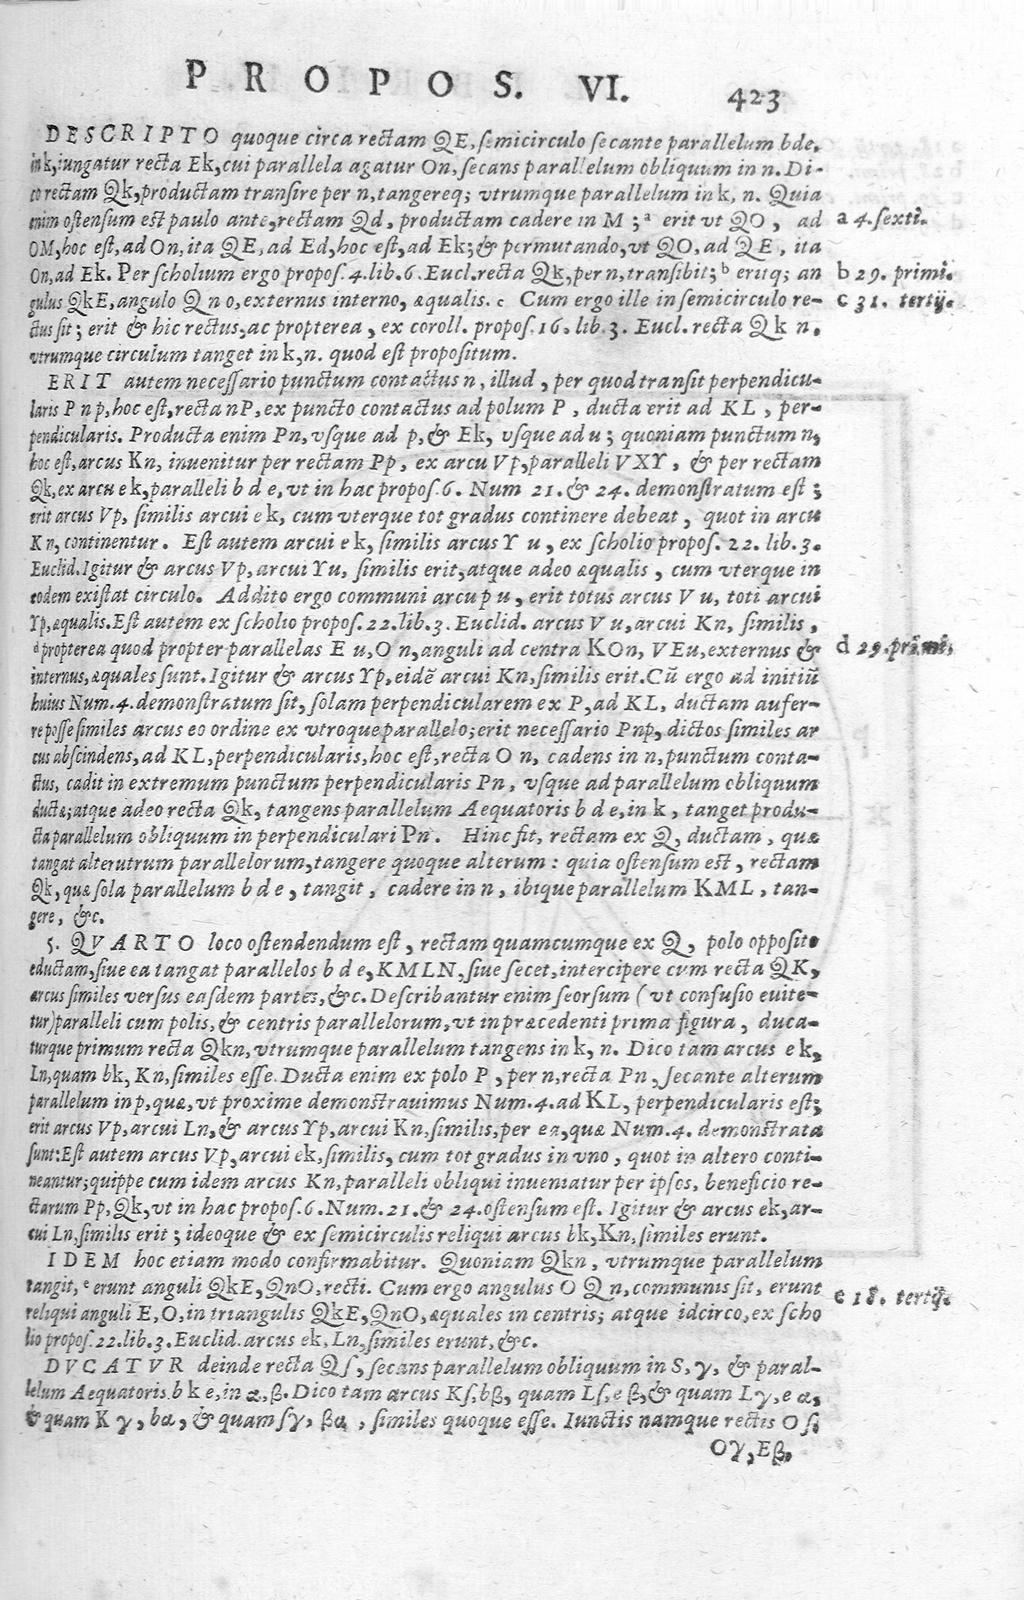 PROPOS. VI. 423
DESCRIPTO quoque circa rectam QE, semicirculo secante parallelum bde,
in k, iungatur recta Ek, cui parallela agatur On, secans parallelum obliquum in n. Di-
co rectam Qk, productam transire per n, tangereq; vtrumque parallelum in k, n. Quia
enim ostensum est paulo ante, rectam Qd, productam cadere in M; ª erit vt QO, ad
OM, hoc est, ad On, ita QE, ad Ed, hoc est, ad Ek; & permutando, vt QO, ad QE, ita
On, ad Ek. Per scholium ergo propos. 4. lib. 6. Eucl. recta Qk, per n, transibit; b eritq; an
gulus QkE, angulo Qno, externus interno, æqualis. c Cum ergo ille in semicirculo re-
ctus sit; erit & hic rectus, ac propterea, ex coroll. propos. 16. lib. 3. Eucl. recta Qkn,
vtrumque circulum tanget in k, n. quod est propositum.
a 4. sexti.
b 29. primi.
c 31. tertij.
ERIT autem necessario punctum contactus n, illud, per quod transit perpendicu-
laris Pnp, hoc est, recta nP, ex puncto contactus ad polum P, ducta erit ad KL, per-
pendicularis. Producta enim Pn, vsque ad p, & Ek, vsque ad u; quoniam punctum n,
hoc est, arcus Kn, inuenitur per rectam Pp, ex arcu Vp, paralleli VXY, & per rectam
Qk, ex arcu ek, paralleli bde, vt in hac propos. 6. Num 21. & 24. demonstratum est;
erit arcus Vp, similis arcui ek, cum vterque tot gradus continere debeat, quot in arcu
Kn, continentur. Est autem arcui ek, similis arcus Yu, ex scholio propos. 22. lib. 3.
Euclid. Igitur & arcus Vp, arcui Yu, similis erit, atque adeo æqualis, cum vterque in
eodem existat circulo. Addito ergo communi arcu pu, erit totus arcus Vu, toti arcui
Yp, æqualis. Est autem ex scholio propos. 22. lib. 3. Euclid. arcus Vu, arcui Kn, similis,
d propterea quod propter parallelas Eu, On, anguli ad centra KOn, VEu, externus &
internus, æquales sunt. Igitur & arcus Yp, eidē arcui Kn, similis erit. Cū ergo ad initiū
huius Num. 4. demonstratum sit, solam perpendicularem ex P, ad KL, ductam aufer-
re posse similes arcus eo ordine ex vtroque parallelo; erit necessario Pnp, dictos similes ar
cus abscindens, ad KL, perpendicularis, hoc est, recta On, cadens in n, punctum conta-
ctus, cadit in extremum punctum perpendicularis Pn, vsque ad parallelum obliquum
ductæ; atque adeo recta Qk, tangens parallelum Aequatoris bde, in k, tanget produ-
cta parallelum obliquum in perpendiculari Pn. Hinc fit, rectam ex Q, ductam, quæ
tangat alterutrum parallelorum, tangere quoque alterum: quia ostensum est, rectam
Qk, quæ sola parallelum bde, tangit, cadere in n, ibique parallelum KML, tan-
gere, &c.
d 29. primi.
5. QVARTO loco ostendendum est, rectam quamcumque ex Q, polo opposito
eductam, siue ea tangat parallelos bde, KMLN, siue secet, intercipere cum recta QK,
arcus similes versus easdem partes, &c. Describantur enim seorsum (vt confusio euite-
tur) paralleli cum polis, & centris parallelorum, vt in præcedenti prima figura, duca-
turque primum recta Qkn, vtrumque parallelum tangens in k, n. Dico tam arcus ek,
Ln, quam bk, Kn, similes esse. Ducta enim ex polo P, per n, recta Pn, secante alterum
parallelum in p, quæ, vt proxime demonstrauimus Num. 4. ad KL, perpendicularis est;
erit arcus Vp, arcui Ln, & arcus Yp, arcui Kn, similis, per ea, quæ Num. 4. demonstrata
sunt: Est autem arcus Vp, arcui ek, similis, cum tot gradus in vno, quot in altero conti-
neantur; quippe cum idem arcus Kn, paralleli obliqui inueniatur per ipsos, beneficio re-
ctarum Pp, Qk, vt in hac propos. 6. Num. 21. & 24. ostensum est. Igitur & arcus ek, ar-
cui Ln, similis erit; ideoque & ex semicirculis reliqui arcus bk, Kn, similes erunt.
IDEM hoc etiam modo confirmabitur. Quoniam Qkn, vtrumque parallelum
tangit, e erunt anguli QkE, QnO, recti. Cum ergo angulus OQn, communis sit, erunt
reliqui anguli E, O, in triangulis QkE, QnO, æquales in centris; atque idcirco, ex scho
lio propos. 22. lib. 3. Euclid. arcus ek, Ln, similes erunt, &c.
e 18. tertij.
DVCATVR deinde recta Qſ, secans parallelum obliquum in S, γ, & paral-
lelum Aequatoris bke, in α, β. Dico tam arcus Kſ, bβ, quam Lſ, eβ, & quam Lγ, eα,
& quam Kγ, bα, & quam ſγ, βα, similes quoque esse. Iunctis namque rectis Oſ,
Oγ, Eβ,